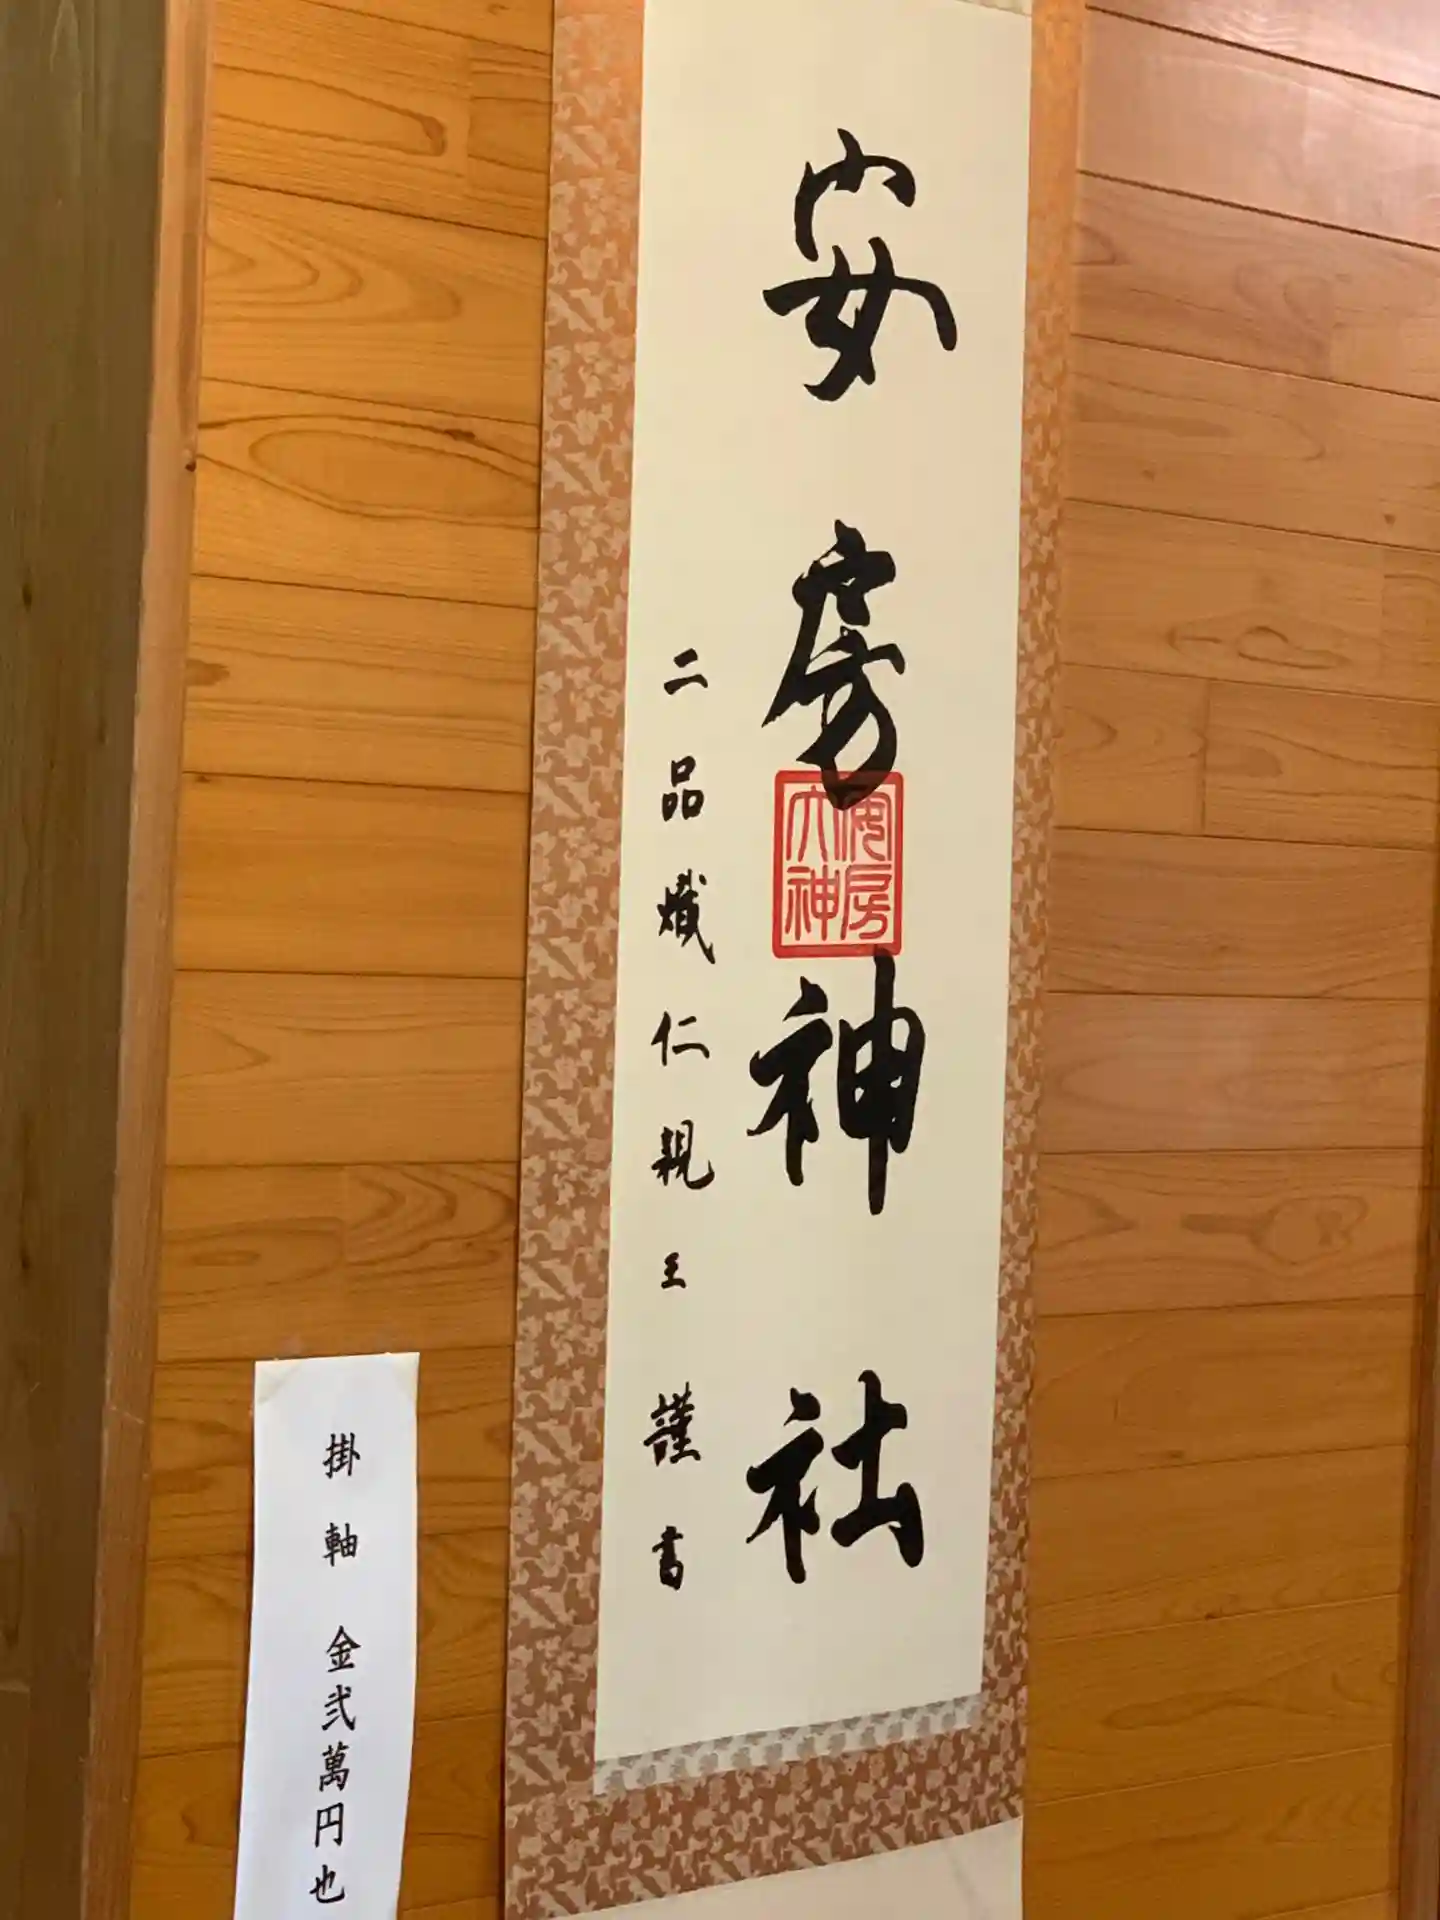 安房神社
安房大神
二品熾仁親王謹書
掛軸 金弐萬円也